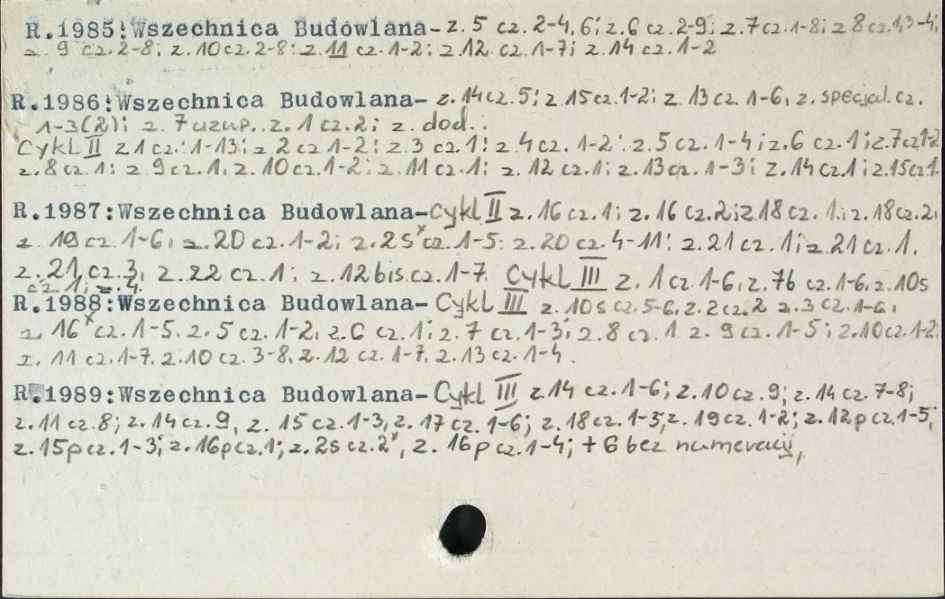 R.1985:Wszechnica Budowlana- z.5 cz.2-4, 6; z.6 cz.2-9; z.7 cz.1-8; z 8 cz.1,3-4;
z. 9 cz.2-8; z.10 cz.2-8; z 11 cz.1-2; z.12 cz.1-7; z.14 cz.1-2
R.1986:Wszechnica Budowlana- z.14 cz.5; z 15 cz.1-2; z 13 cz.1-6, z. specjal. cz.
1-3(2); z. 7 uzup. z.1 cz.2; z. dod.;
Cykl II z 1 cz.: 1-13; z 2 cz 1-2; z.3 cz.1; z.4 cz. 1-2; z.5 cz. 1-4; z.6 cz.1; z.7 cz 1-2
z.8 cz 1; z 9 cz.1, z.10 cz.1-2; z.11 cz.1; z. 12 cz.1; z.13 cz. 1-3; z.14 cz.1; z.15 cz 1.
R.1987:Wszechnica Budowlana- Cykl II z.16 cz.1; z.16 cz.2; z.18 cz.1.; z.18 cz.2;
z. 19 cz.1-6; z.20 cz.1-2; z.2s* cz.1-5; z.20 cz.4-11; z.21 cz.1; z.21 cz.1.
z.21, cz.3, z.22 cz.1; z.12 bis cz.1-7. Cykl III z.1 cz.1-6, z.7b cz.1-6, z.10s
cz.1; z.4.
R.1988:Wszechnica Budowlana- Cykl III z.10s cz.5-6, z.2 cz.2 z.3 cz.1-6,
z. 16* cz.1-5. z.5 cz.1-2, z.6 cz.1; z.7 cz.1-3; z.8 cz.1 z.9 cz.1-5; z.10 cz.1-2
z. 11 cz.1-7. z.10 cz.3-8, z.12 cz.1-7, z.13 cz.1-4.
R.1989:Wszechnica Budowlana- Cykl III z.14 cz.1-6; z.10 cz.9; z.14 cz.7-8;
z.11 cz.8; z.14 cz.9, z. 15 cz.1-3, z.17 cz.1-6; z.18 cz.1-3, z.19 cz.1-2; z.12p cz.1-5;
z.15p cz.1-3; z.16p cz.1; z.2s cz.2*, z.16p cz.1-4; + 6 bez numeracji,